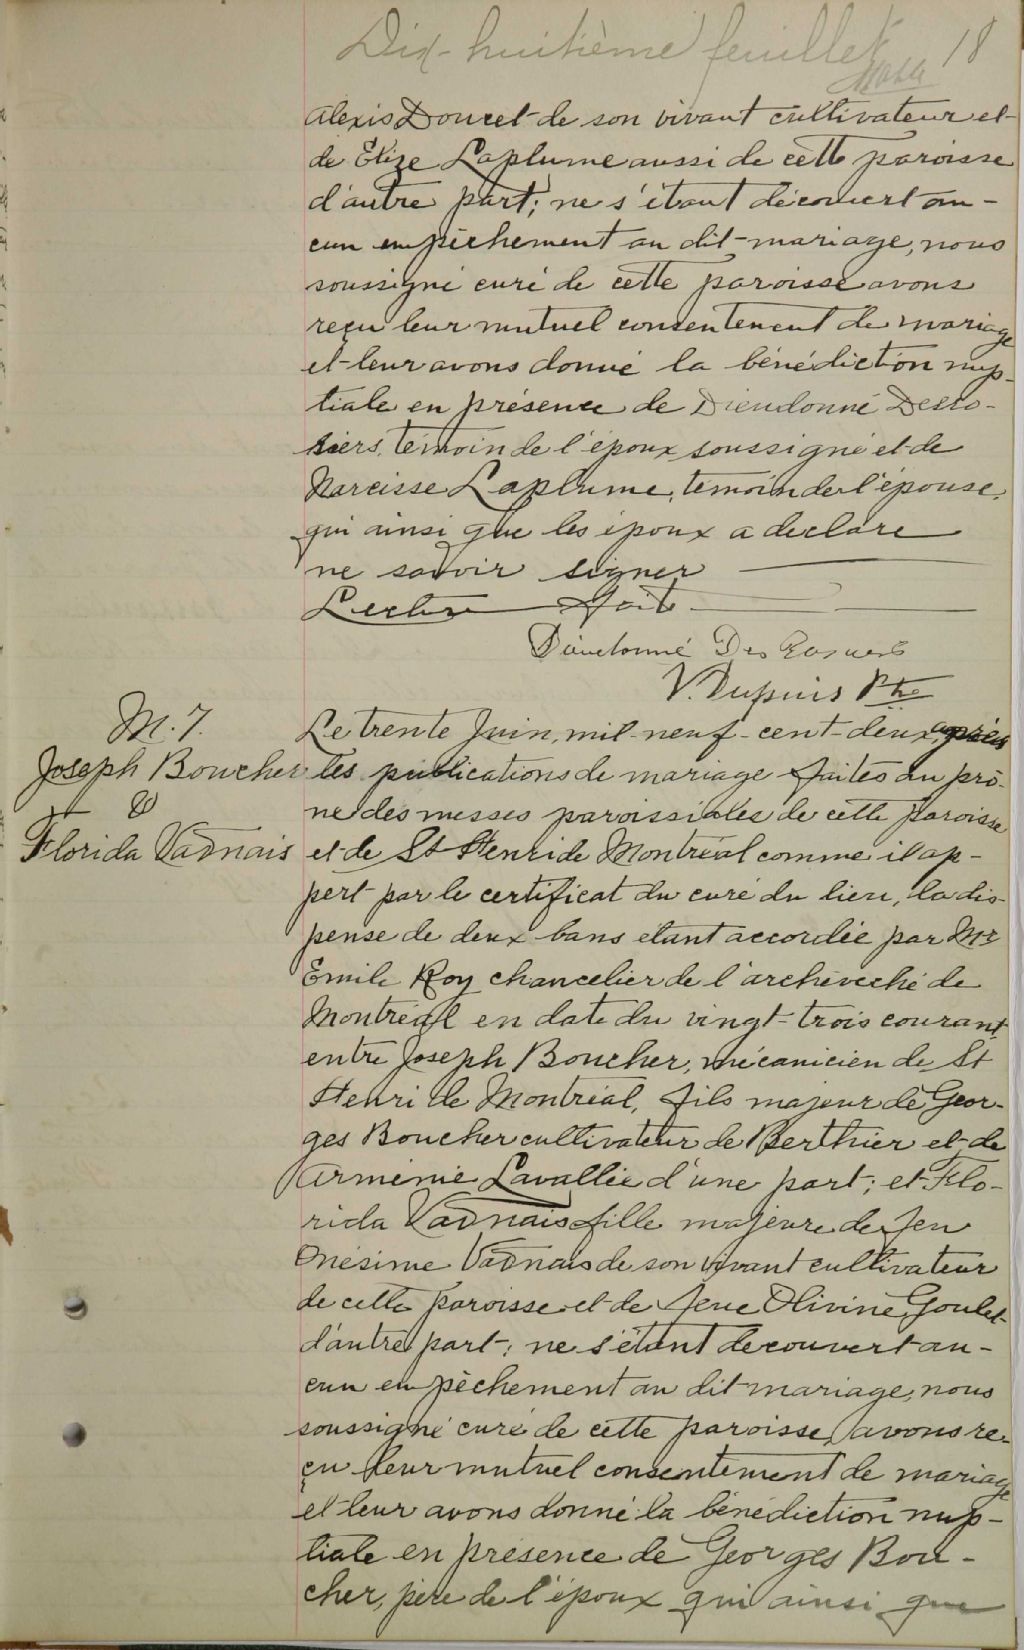 Dix-huitième feuillet 18
Alexis Doucet de son vivant cultivateur et
de Elize Laplume aussi de cette paroisse
d'autre part; ne s'étant découvert au-
cun empêchement au dit mariage, nous
soussigné curé de cette paroisse avons
reçu leur mutuel consentement de mariage
et leur avons donné la bénédiction nup-
tiale en présence de Dieudonné Desro-
siers, témoin de l'époux soussigné et de
Narcisse Laplume, témoin de l'épouse,
qui ainsi que les époux a declare
ne savoir signer
Lecture faite
Dieudonné Des Rosiers
V. Dupuis Ptre
M. 7.
Joseph Boucher
&
Florida Vadnais
Le trente Juin, mil-neuf-cent-deux, après
les publications de mariage faites au prô-
ne des messes paroissiales de cette paroisse
et de St Henri de Montréal comme il ap-
pert par le certificat du curé du lieu, la dis-
pense de deux bans étant accordée par Mr
Emile Roy chancelier de l'archevêché de
Montréal en date du vingt-trois courant,
entre Joseph Boucher, mécanicien de St
Henri de Montréal, fils majeur de Geor-
ges Boucher cultivateur de Berthier et de
Arménie Lavallée d'une part; et Flo-
rida Vadnais fille majeure de feu
Onésime Vadnais de son vivant cultivateur
de cette paroisse et de feue Olivine Goulet
d'autre part; ne s'étant decouvert au-
cun empêchement au dit mariage, nous
soussigné curé de cette paroisse, avons re-
çu leur mutuel consentement de mariage
et leur avons donné la bénédiction nup-
tiale en présence de Georges Bou-
cher, père de l'époux qui ainsi que